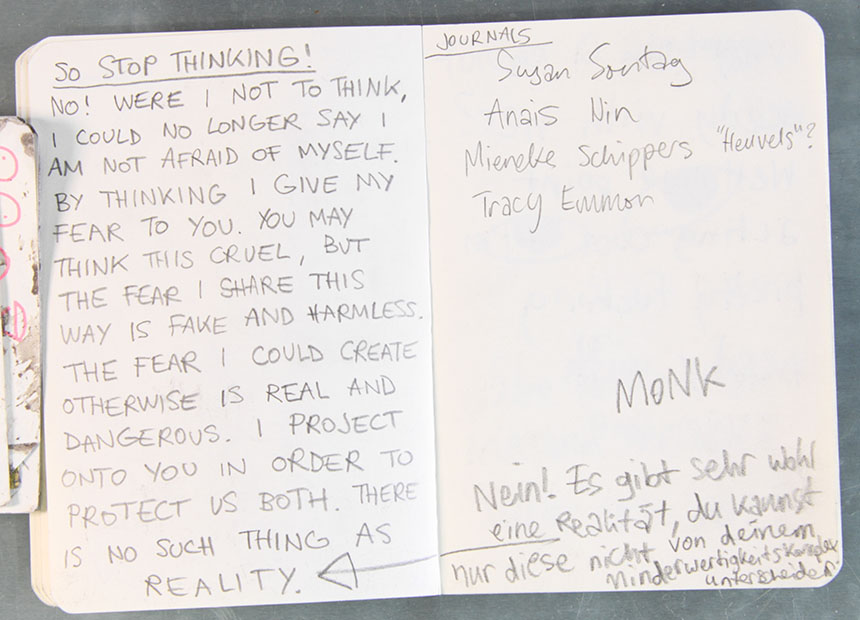 SO STOP THINKING!
NO! WERE I NOT TO THINK,
I COULD NO LONGER SAY I
AM NOT AFRAID OF MYSELF.
BY THINKING I GIVE MY
FEAR TO YOU. YOU MAY
THINK THIS CRUEL, BUT
THE FEAR I SHARE THIS
WAY IS FAKE AND HARMLESS.
THE FEAR I COULD CREATE
OTHERWISE IS REAL AND
DANGEROUS. I PROJECT
ONTO YOU IN ORDER TO
PROTECT US BOTH. THERE
IS NO SUCH THING AS
REALITY.
JOURNALS
Susan Sontag
Anais Nin
Mieneke Schippers "Heuvels"?
Tracy Emmon
MONK
Nein! Es gibt sehr wohl
eine Realität, du kannst
nur diese nicht von deinem
Minderwertigkeitskomplex
unterscheiden.